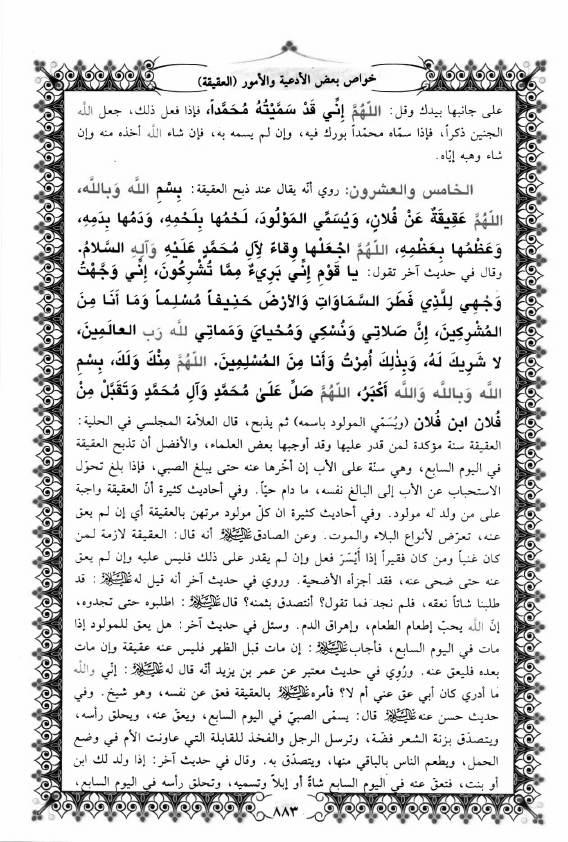 خواص بعض الأدعية والأمور (العقيقة)
على جانبها بيدك وقل: اللّهُمَّ إِنِّي قَدْ سَمَّيْتُهُ مُحَمَّداً، فإذا فعل ذلك، جعل الله
الجنين ذكراً، فإذا سمّاه محمّداً بورك فيه، وإن لم يسمه به، فإن شاء الله أخذه منه وإن
شاء وهبه إيّاه.
الخامس والعشرون: روي أنّه يقال عند ذبح العقيقة: بِسْمِ اللَّه وَبِاللَّه،
اللّهُمَّ عَقِيقَةٌ عَنْ فُلان، وَيُسَمِّي المَوْلُودَ، لَحْمُها بِلَحْمِهِ، وَدَمُها بِدَمِهِ،
وَعَظْمُها بِعَظْمِهِ، اللّهُمَّ اجْعَلْها وِقاءً لآلِ مُحَمَّدٍ عَلَيْهِ وَآلِهِ السَّلامُ.
وقال في حديث آخر تقول: يا قَوْمِ إِنِّي بَرِيءٌ مِمَّا تُشْرِكُونَ، إِنِّي وَجَّهْتُ
وَجْهِي لِلَّذِي فَطَرَ السَّمَاوَاتِ وَالأَرْضَ حَنِيفاً مُسْلِماً وَمَا أَنَا مِنَ
المُشْرِكِينَ، إِنَّ صَلاتِي وَنُسُكِي وَمُحْيايَ وَمَماتِي للَّه رَب العالَمِينَ،
لا شَرِيكَ لَهُ، وَبِذلِكَ أُمِرْتُ وَأَنا مِنَ المُسْلِمِينَ. اللّهُمَّ مِنْكَ وَلَكَ، بِسْمِ
اللَّه وَبِاللَّه وَاللَّه أَكْبَرُ، اللّهُمَّ صَلِّ عَلَىٰ مُحَمَّدٍ وَآلِ مُحَمَّدٍ وَتَقَبَّلْ مِنْ
فُلان ابن فُلان (ويُسَمّي المولود باسمه) ثم يذبح، قال العلاّمة المجلسي في الحلية:
العقيقة سنة مؤكدة لمن قدر عليها وقد أوجبها بعض العلماء، والأفضل أن تذبح العقيقة
في اليوم السابع، وهي سنّة على الأب إن أخّرها عنه حتى يبلغ الصبي، فإذا بلغ تحوّل
الاستحباب عن الأب إلى البالغ نفسه، ما دام حيّاً. وفي أحاديث كثيرة أنّ العقيقة واجبة
على من ولد له مولود. وفي أحاديث كثيرة ان كلّ مولود مرتهن بالعقيقة أي إن لم يعق
عنه، تعرّض لأنواع البلاء والموت. وعن الصادق عليه السلام أنه قال: العقيقة لازمة لمن
كان غنياً ومن كان فقيراً إذا أَيْسَرَ فعل وإن لم يقدر على ذلك فليس عليه وإن لم يعق
عنه حتى ضحى عنه، فقد أجزأه الأضحية. وروي في حديث آخر أنه قيل له عليه السلام: قد
طلبنا شاتاً نعقه، فلم نجد فما تقول؟ أنتصدق بثمنه؟ قال عليه السلام: اطلبوه حتى تجدوه،
إنّ الله يحبّ إطعام الطعام، وإهراق الدم. وسئل في حديث آخر: هل يعق للمولود إذا
مات في اليوم السابع، فأجاب عليه السلام: إن مات قبل الظهر فليس عنه عقيقة وإن مات
بعده فليعق عنه. ورُوِي في حديث معتبر عن عمر بن يزيد أنّه قال له عليه السلام: إنّي والله
ما أدري كان أبي عق عني أم لا؟ فأمره عليه السلام بالعقيقة فعق عن نفسه، وهو شيخ. وفي
حديث حسن عنه عليه السلام قال: يسمّى الصبيّ في اليوم السابع، ويعقّ عنه، ويحلق رأسه،
ويتصدّق بزنة الشعر فضّة، وترسل الرجل والفخذ للقابلة التي عاونت الأم في وضع
الحمل، ويطعم الناس بالباقي منها، ويتصدّق به. وقال في حديث آخر: إذا ولد لك ابن
أو بنت، فتعقّ عنه في اليوم السابع شاةً أو إبلاً وتسميه، وتحلق رأسه في اليوم السابع،
٨٨٣